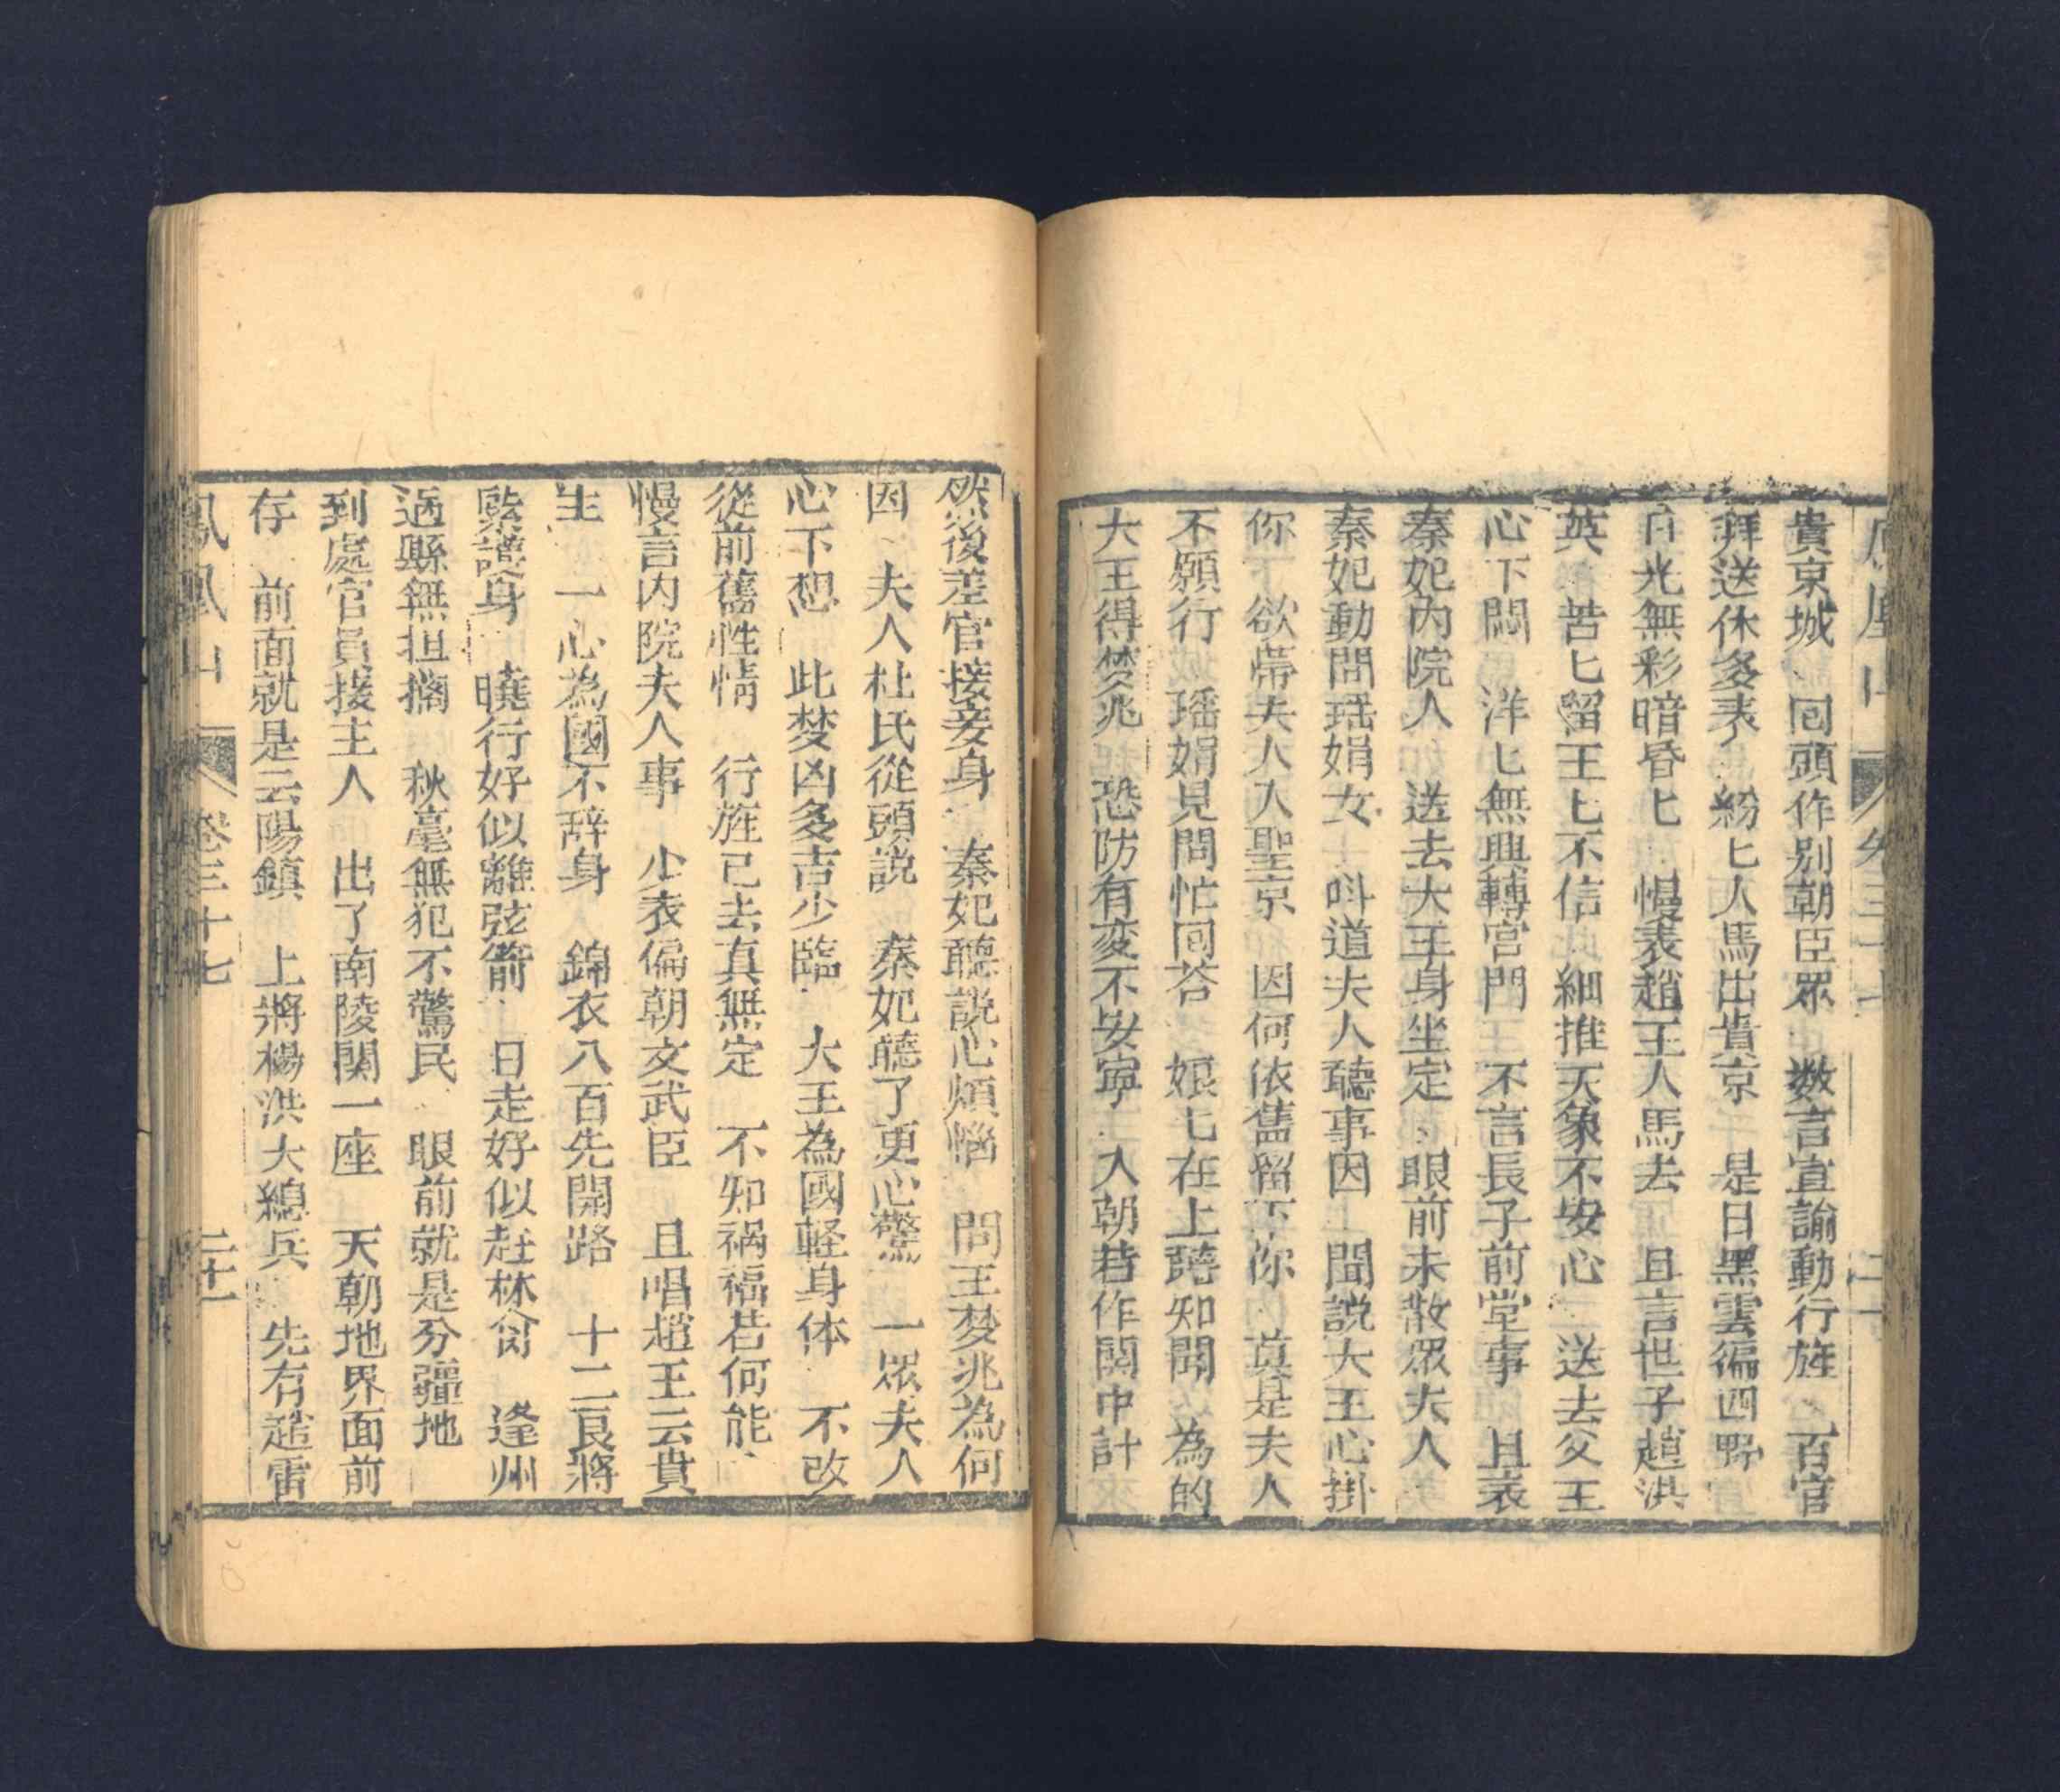 鳳凰山 卷三十七 二十
貴京城 回頭作别朝臣眾 数言宣諭動行旌 百官
拜送休多表 紛匕人馬出貴京 是日黑雲徧四野
日光無彩暗昏匕 慢表趙王人馬去 且言世子趙洪
英 苦匕留王匕不信 細推天象不安心 送去父王
心下悶 洋匕無興轉宮門 不言長子前堂事 且表
秦妃内院人 送去大王身坐定 眼前未散眾夫人
秦妃動問瑶娟女 呌道夫人聽事因 聞説大王心掛
你 欲帶夫人入聖京 因何依舊留下你 莫是夫人
不願行 瑶娟見問忙回荅 娘七在上聽知聞 為的
大王得梦兆 恐防有変不安寧 入朝若作関中計
然後差官接妾身 秦妃聽説心煩惱 問王梦兆為何
因 夫人杜氏從頭説 秦妃聽了更心驚 一眾夫人
心下想 此梦凶多吉少臨 大王為國軽身体 不改
從前舊性情 行旌己去真無定 不知祸福若何能
慢言内院夫人事 少表偏朝文武臣 且唱趙王云貴
生 一心為國不辞身 錦衣八百先開路 十二良將
緊護身 曉行好似離弦箭 日走好似赶林禽 逢州
過縣無担擱 秋毫無犯不驚民 眼前就是分疆地
到處官員接主人 出了南陵関一座 天朝地界面前
存 前面就是云陽鎮 上將楊洪大總兵 先有趙雷
鳳凰山 卷三十七 二十一